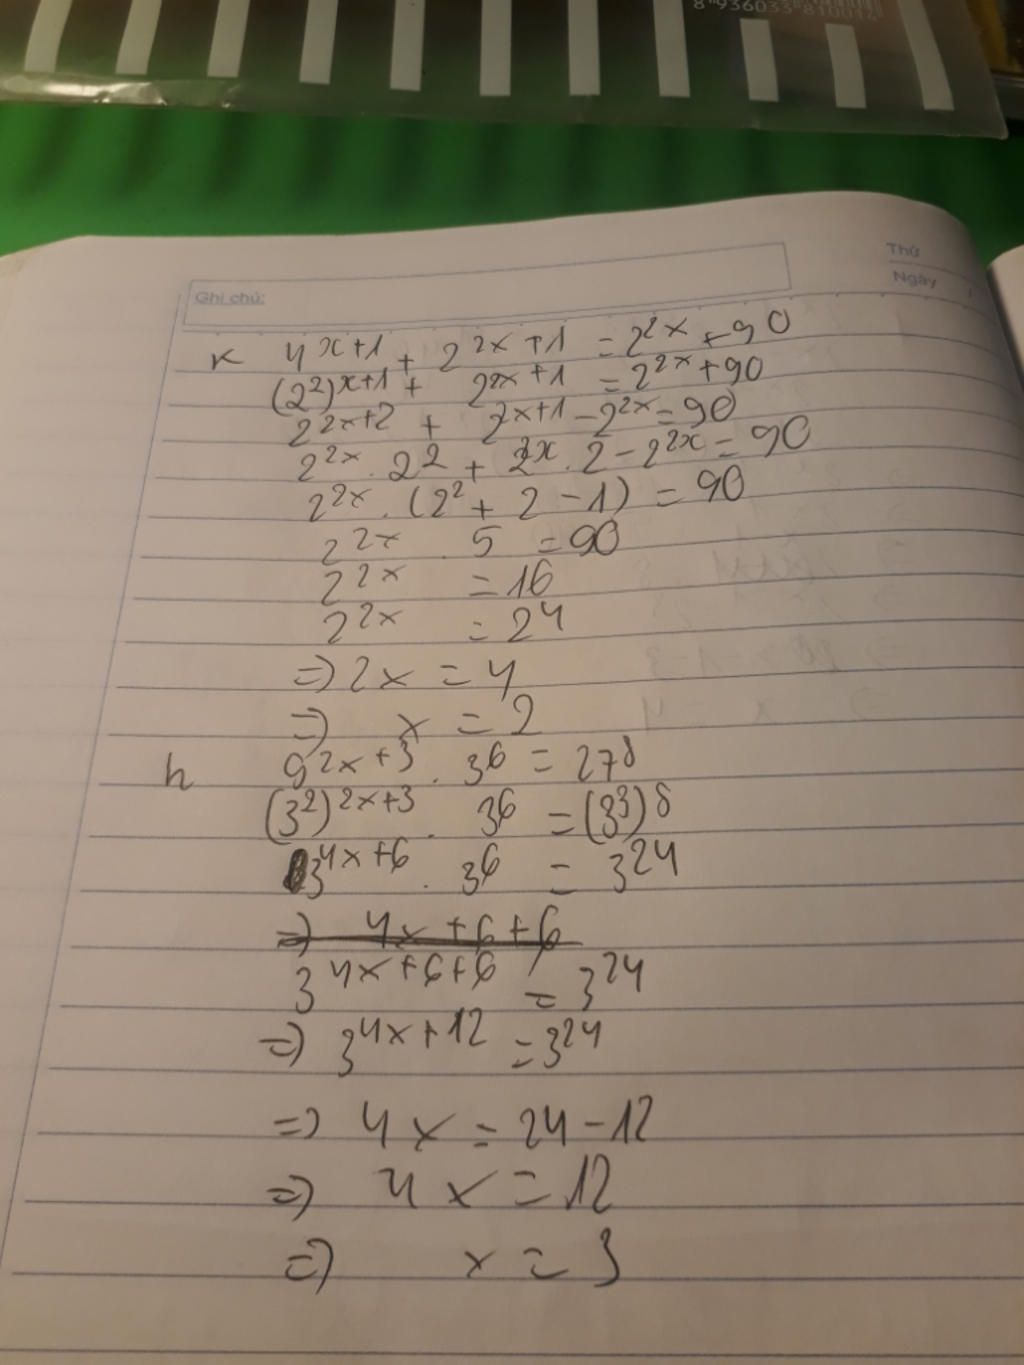 8 936033 810014
Thứ
Ngày
Ghi chú:
K 4^{x+1} + 2^{2x+1} = 2^{2x} + 90
(2^2)^{x+1} + 2^{2x+1} = 2^{2x} + 90
2^{2x+2} + 2^{2x+1} - 2^{2x} = 90
2^{2x} . 2^2 + 2^{2x} . 2 - 2^{2x} = 90
2^{2x} . (2^2 + 2 - 1) = 90
2^{2x} . 5 = 90
2^{2x} = 16
2^{2x} = 2^4
=> 2x = 4
=> x = 2
h 9^{2x+3} . 3^6 = 27^8
(3^2)^{2x+3} . 3^6 = (3^3)^8
3^{4x+6} . 3^6 = 3^{24}
=> 4x + 6 + 6
3^{4x+6+6} = 3^{24}
=> 3^{4x+12} = 3^{24}
=> 4x = 24 - 12
=> 4x = 12
=> x = 3